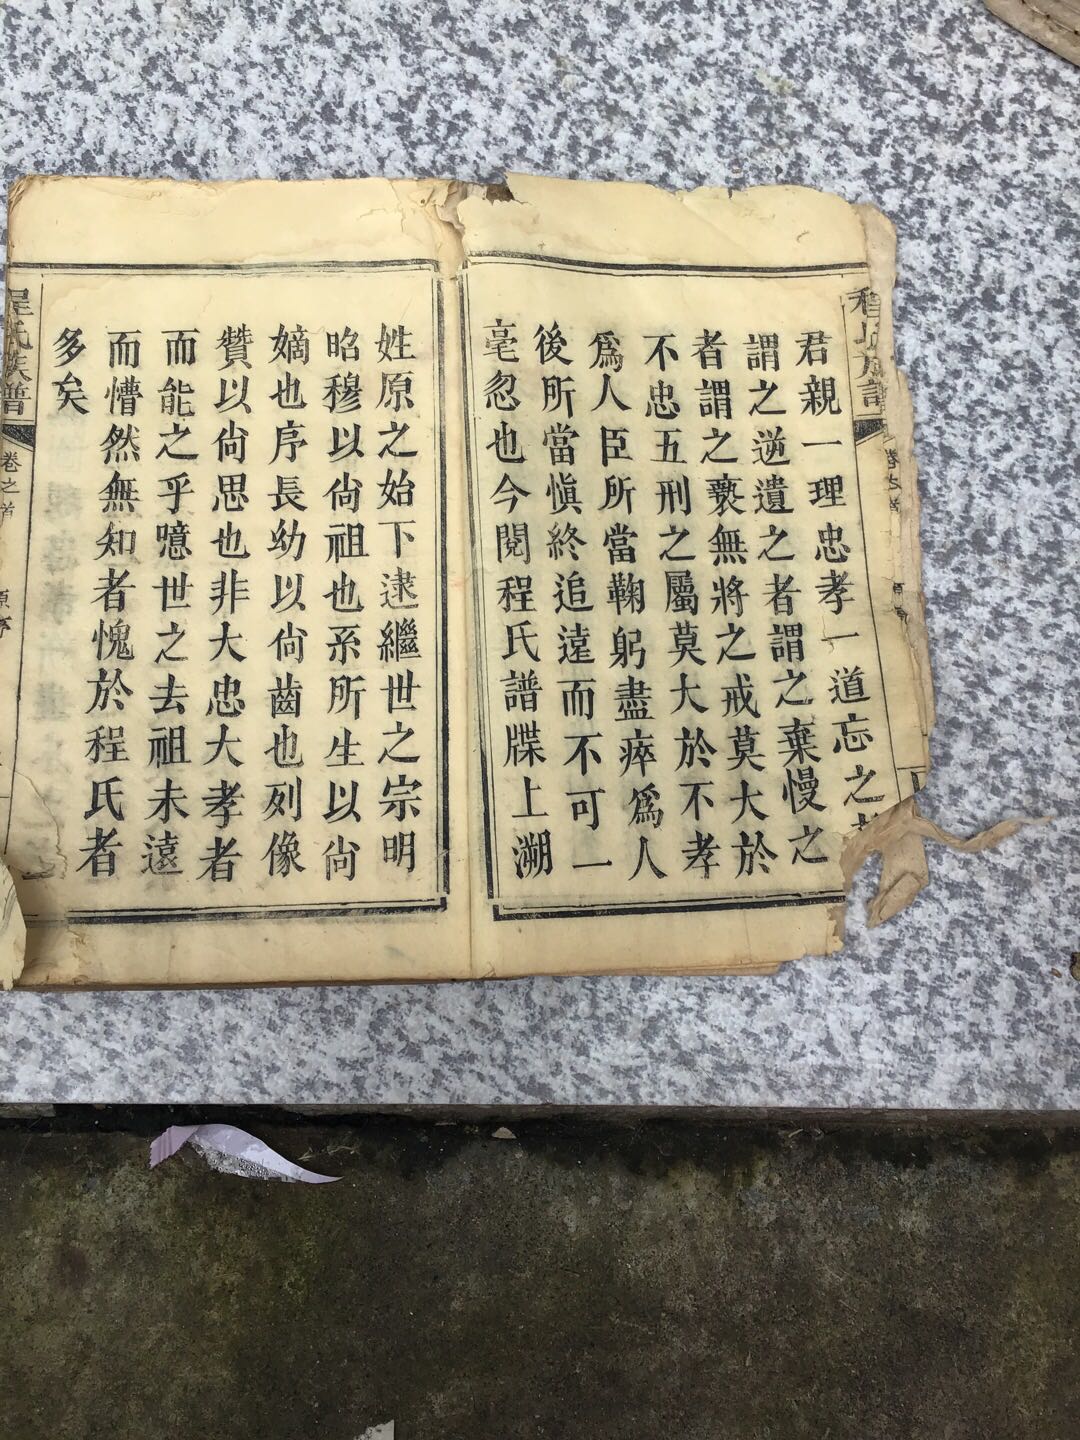 程氏族譜
卷之首
原序
君親一理忠孝一道忘之者
謂之逆遺之者謂之棄慢之
者謂之褻無將之戒莫大於
不忠五刑之屬莫大於不孝
爲人臣所當鞠躬盡瘁爲人
後所當愼終追遠而不可一
亳忽也今閱程氏譜牒上溯
姓原之始下逮繼世之宗明
昭穆以尙祖也系所生以尙
嫡也序長幼以尙齒也列像
贊以尙思也非大忠大孝者
而能之乎噫世之去祖未遠
而懵然無知者愧於程氏者
多矣
程氏族譜
卷之首
原序